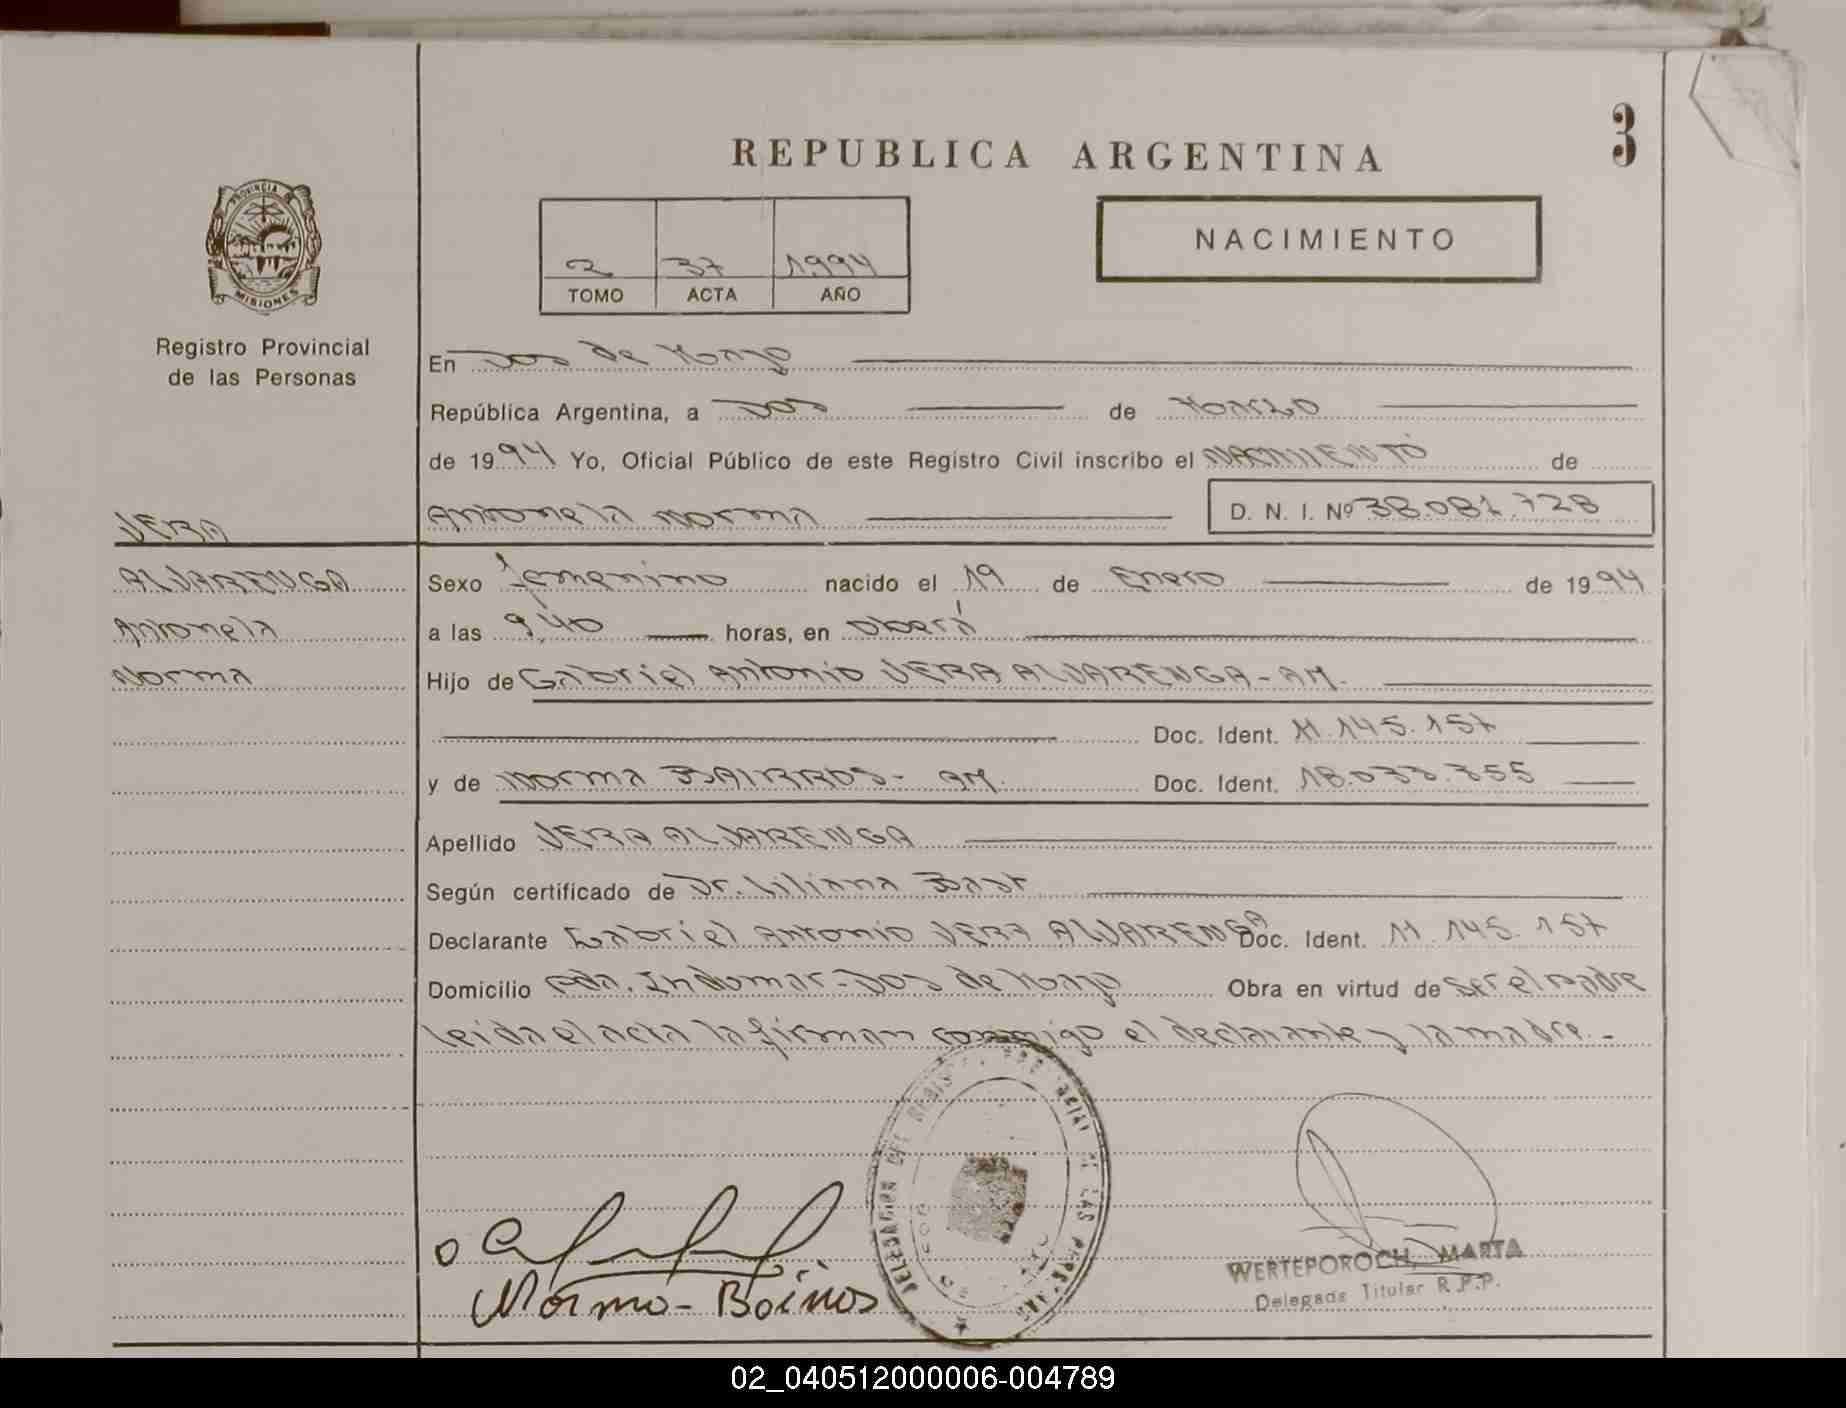 3
REPUBLICA ARGENTINA
NACIMIENTO
2 37 1994
TOMO ACTA AÑO
PROVINCIA
MISIONES
Registro Provincial
de las Personas
En Dos de Mayo
República Argentina, a Dos de Marzo
de 1994 Yo, Oficial Público de este Registro Civil inscribo el NACIMIENTO de
Antonela Norma D. N. I. Nº 38.081.728
VERA
ALVARENGA
Antonela
Norma
Sexo femenino nacido el 19 de Enero de 1994
a las 9,40 horas, en Oberá
Hijo de Gabriel Antonio VERA ALVARENGA - AM.
Doc. Ident. 11.145.157
y de Norma BAIRROS - AM. Doc. Ident. 18.033.355
Apellido VERA ALVARENGA
Según certificado de Dr. Liliana Bast
Declarante Gabriel Antonio VERA ALVARENGA Doc. Ident. 11.145.157
Domicilio Pda. Indumar - Dos de Mayo Obra en virtud de ser el padre
leida el acta la firman conmigo el declarante y la madre.-
DELEGACION DEL
Norma - Boirros
WERTEPOROCH, MARTA
Delegada Titular R.P.P.
02_040512000006-004789